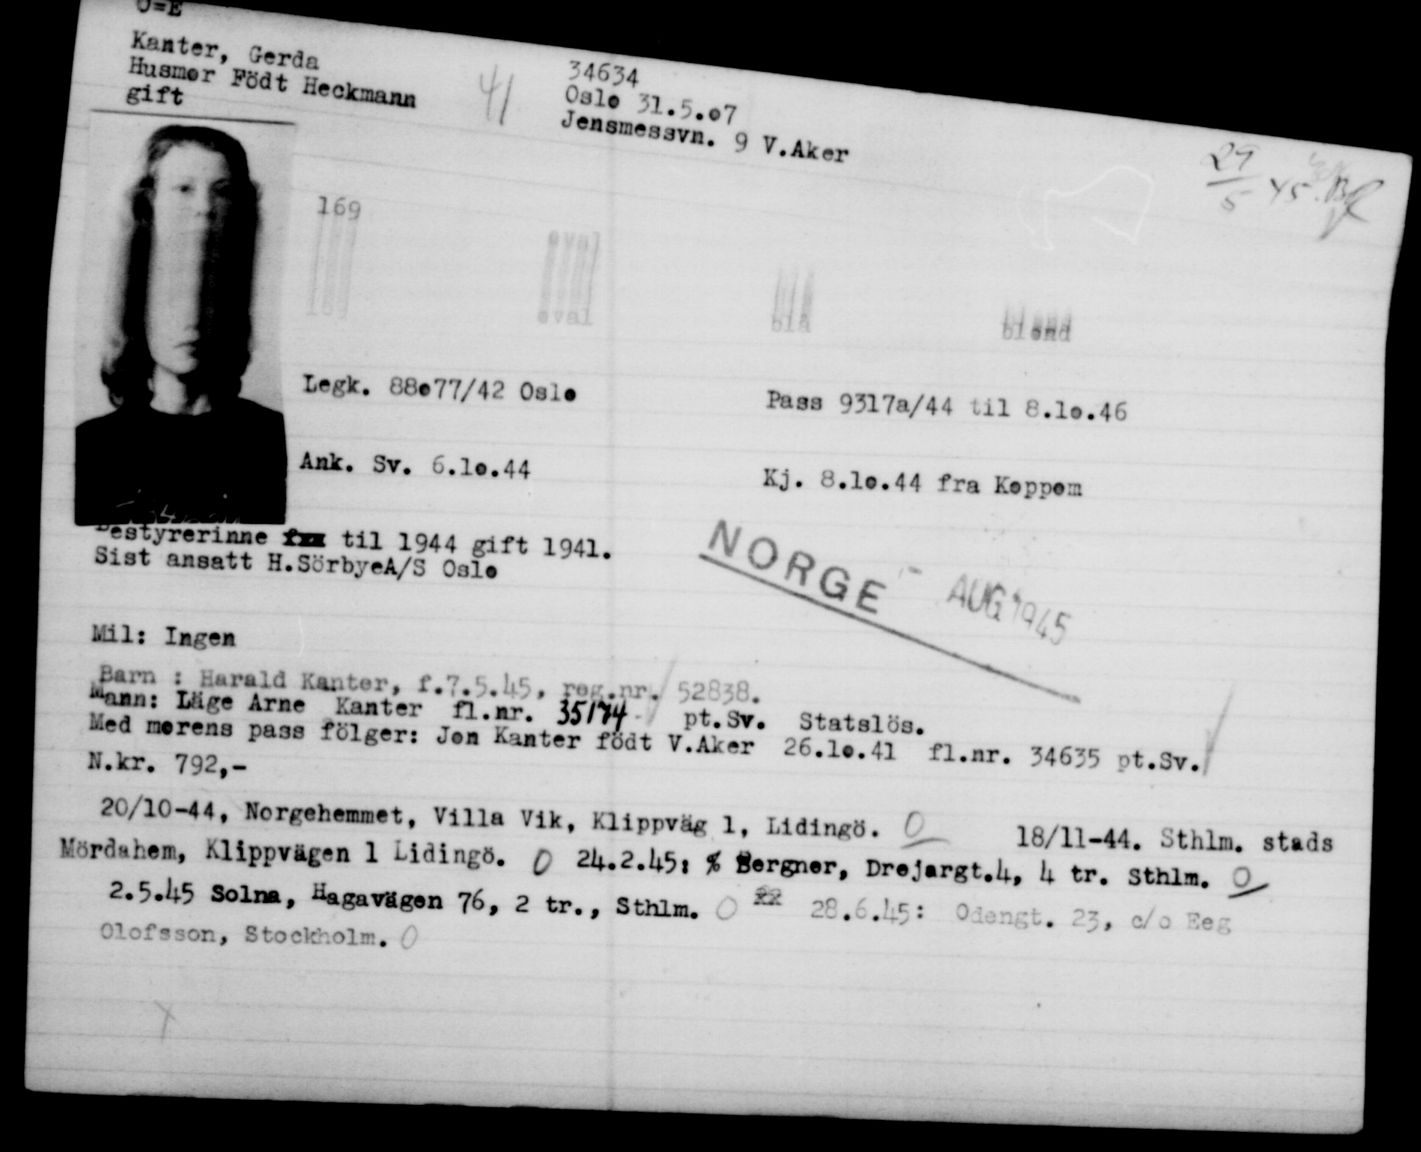 O=E
Kanter, Gerda
Husmor Födt Heckmann
gift
41
34634
Oslo 31.5.o7
Jensmessvn. 9 V.Aker
29/5 45.
169
oval
oval
blå
blond
Legk. 88o77/42 Oslo
Pass 9317a/44 til 8.1o.46
Ank. Sv. 6.1o.44
Kj. 8.1o.44 fra Koppom
Bestyrerinne til 1944 gift 1941.
Sist ansatt H.SörbyeA/S Oslo
NORGE - AUG 1945
Mil: Ingen
Barn : Harald Kanter, f.7.5.45, reg.nr. 52838.
Mann: Läge Arne Kanter fl.nr. 35174 pt.Sv. Statslös.
Med morens pass fölger: Jon Kanter födt V.Aker 26.1o.41 fl.nr. 34635 pt.Sv.
N.kr. 792,-
20/10-44, Norgehemmet, Villa Vik, Klippväg 1, Lidingö. O 18/11-44. Sthlm. stads
Mördahem, Klippvägen 1 Lidingö. O 24.2.45: % Bergner, Drejargt.4, 4 tr. Sthlm. O
2.5.45 Solna, Hagavägen 76, 2 tr., Sthlm. O 28.6.45: Odengt. 23, c/o Eeg
Olofsson, Stockholm. O